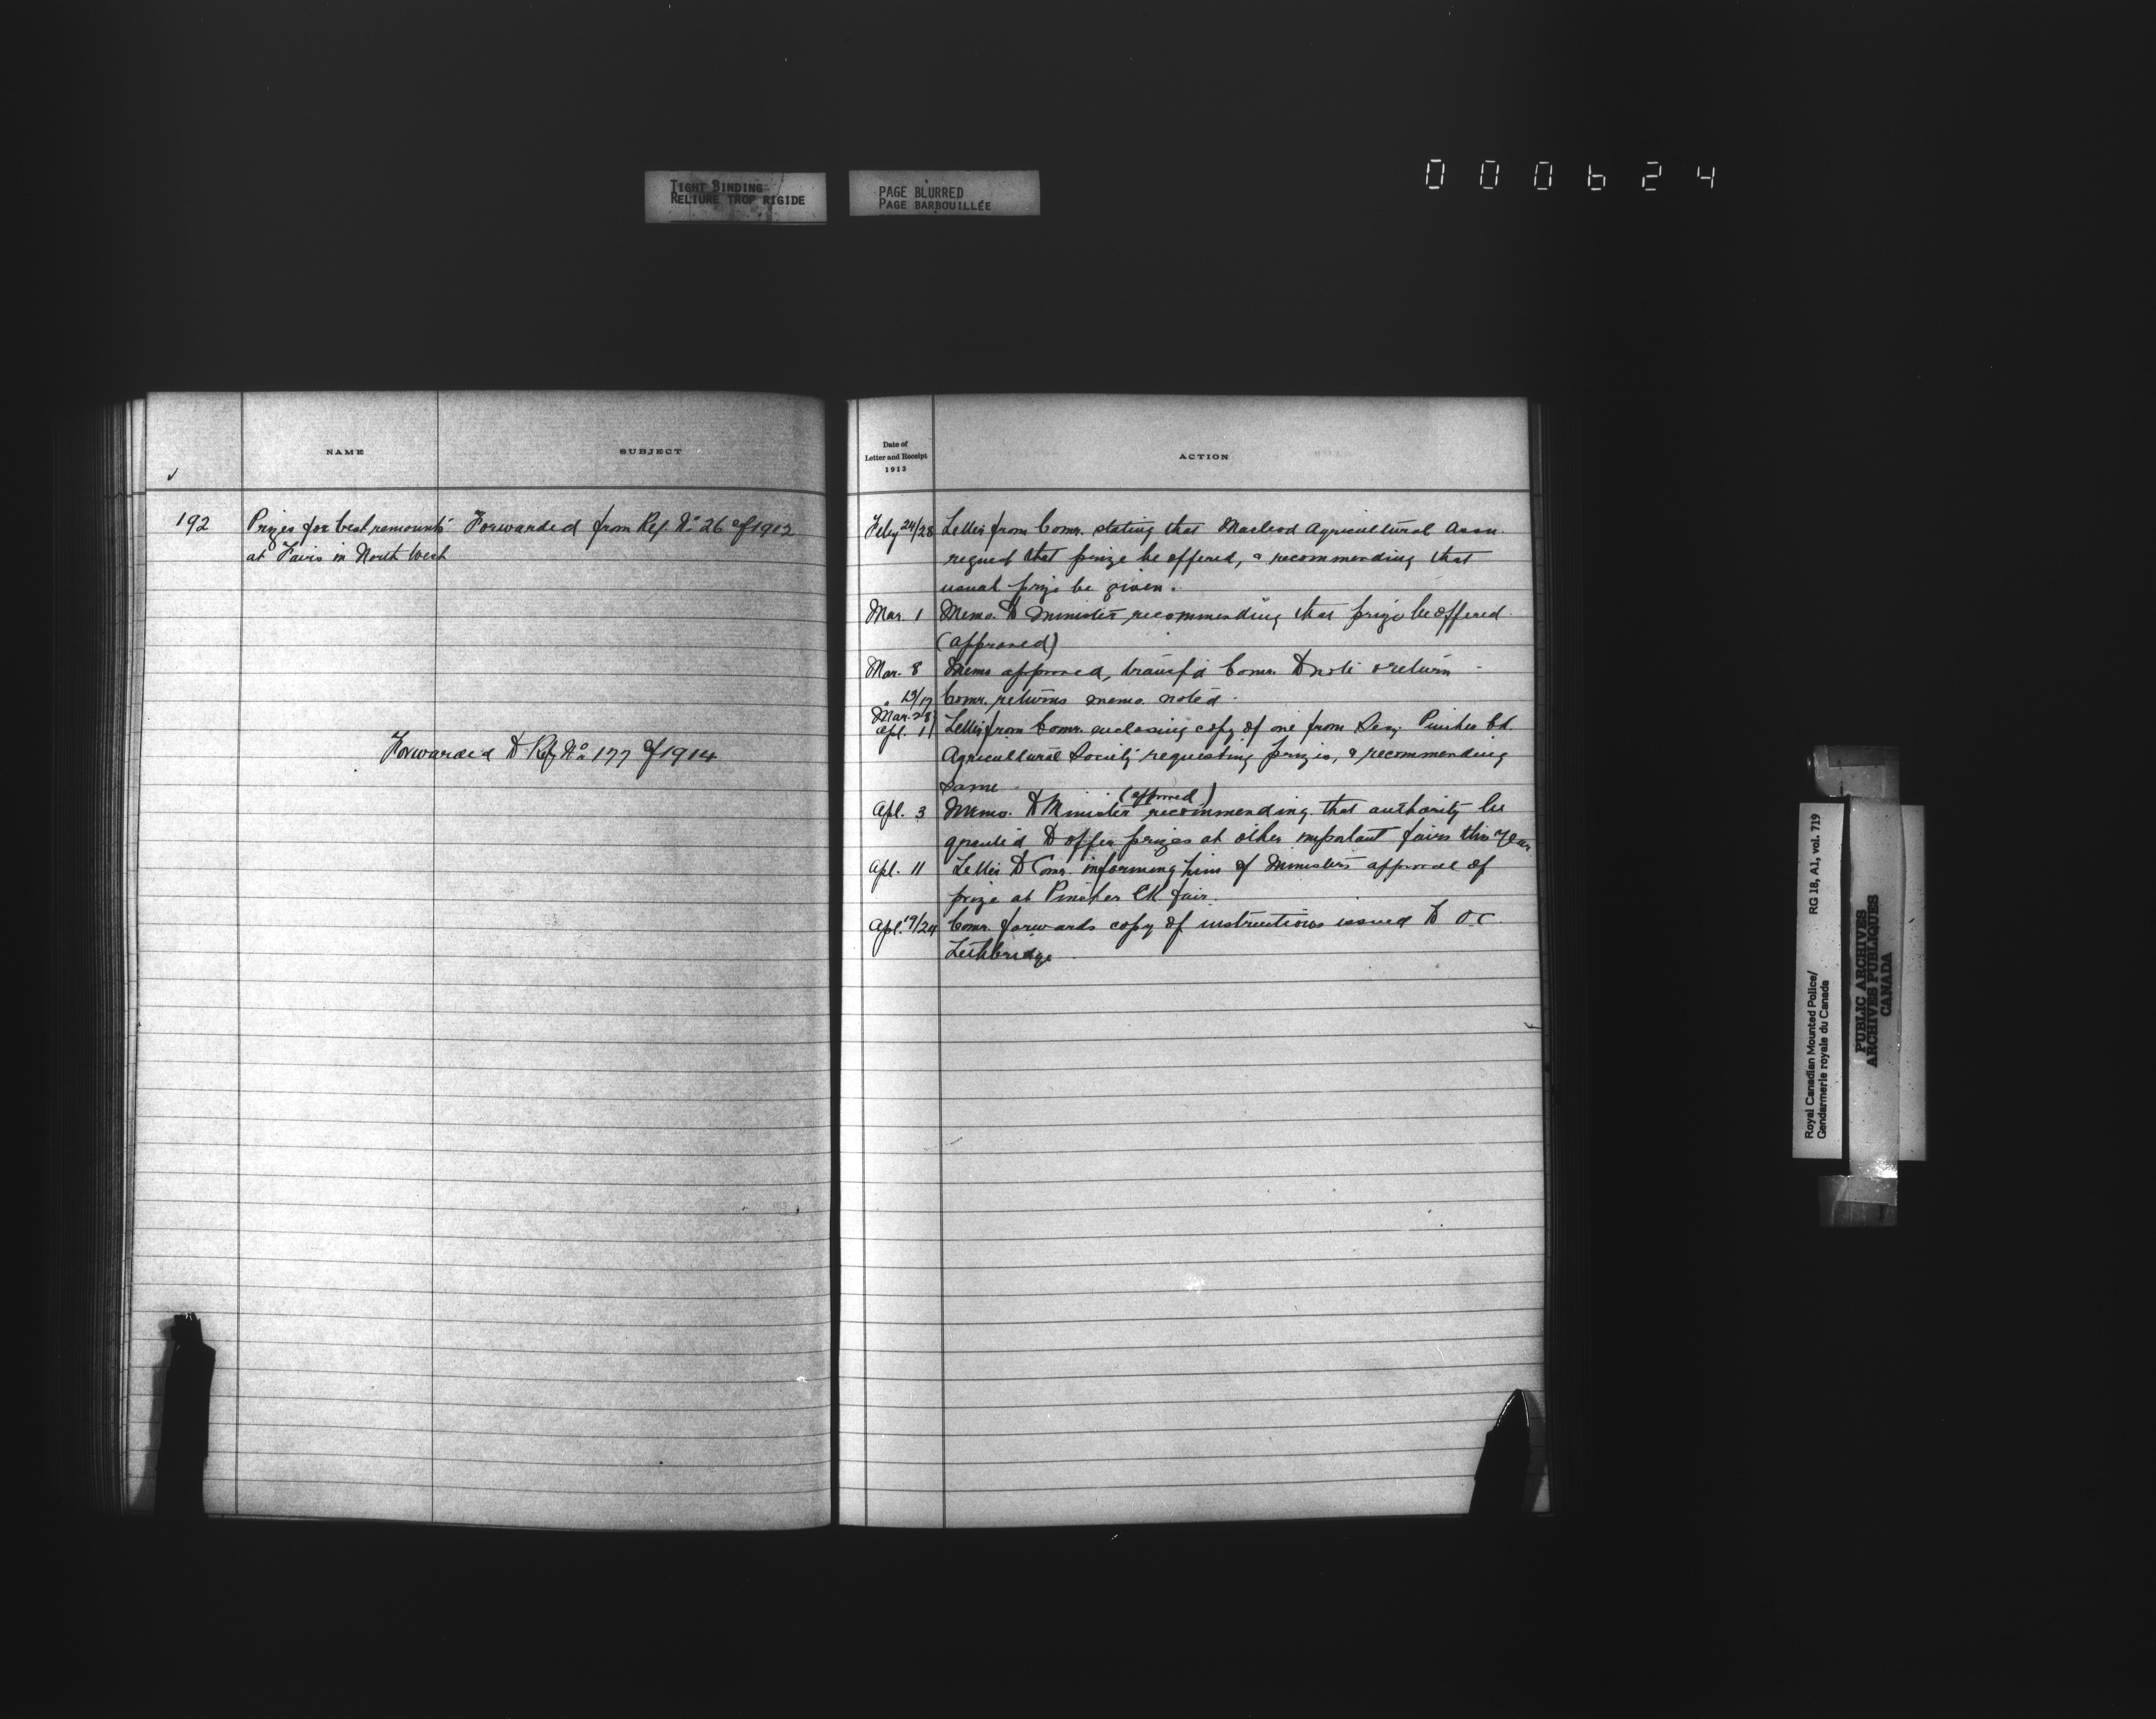 TIGHT BINDING
RELIURE TROP RIGIDE
PAGE BLURRED
PAGE BARBOUILLÉE
000624
NAME
SUBJECT
192
Prizes for best remounts
at Fairs in North West
Forwarded from Ref. No 26 of 1912
Forwarded to Ref No 177 of 1914
Date of
Letter and Receipt
1913
ACTION
Feby 24/28 Letter from Comr. stating that Macleod Agricultural Assn.
request that prize be offered, & recommending that
usual prize be given.
Mar. 1 Memo. to Minister recommending that prize be offered
(approved)
Mar. 8 Memo approved, transf'd Comr. to note & return
" 13/17 Comr. returns memo. noted.
Mar. 28
Apl. 1 Letter from Comr. enclosing copy of one from Secy. Pincher Ck.
Agricultural Society requesting prizes, & recommending
same
(approved)
Apl. 3 Memo. to Minister recommending that authority be
granted to offer prizes at other important fairs this year
Apl. 11 Letter to Comr. informing him of Minister's approval of
prize at Pincher Ck fair.
Apl. 19/24 Comr. forwards copy of instructions issued to O.C.
Lethbridge
Royal Canadian Mounted Police/
Gendarmerie royale du Canada
RG 18, A1, vol. 719
PUBLIC ARCHIVES
ARCHIVES PUBLIQUES
CANADA